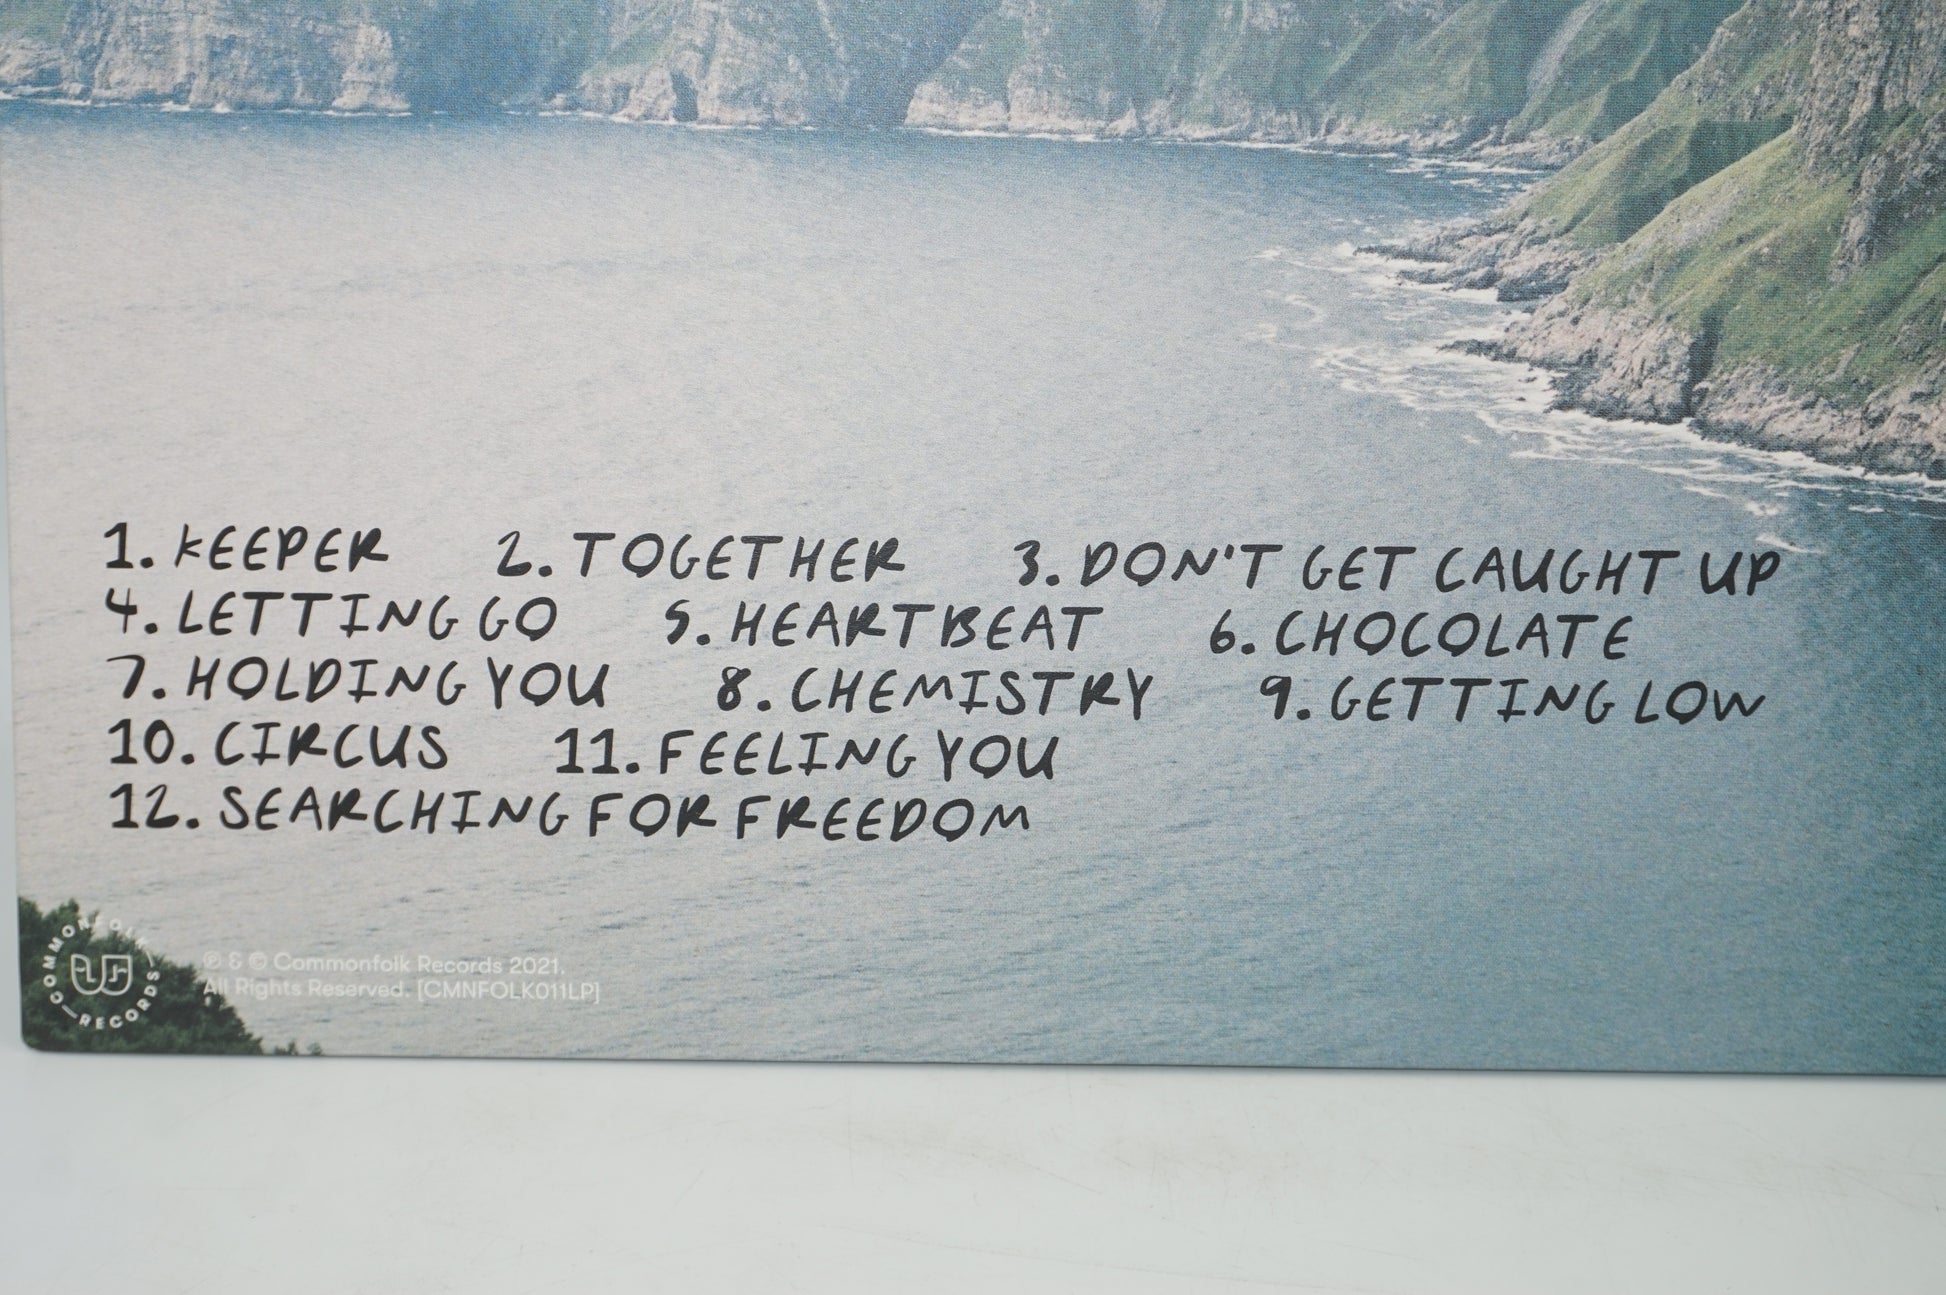 1. KEEPER 2. TOGETHER 3. DON'T GET CAUGHT UP
4. LETTING GO 5. HEARTBEAT 6. CHOCOLATE
7. HOLDING YOU 8. CHEMISTRY 9. GETTING LOW
10. CIRCUS 11. FEELING YOU
12. SEARCHING FOR FREEDOM
COMMONFOLK RECORDS
℗ & © Commonfolk Records 2021.
All Rights Reserved. [CMNFOLK011LP]